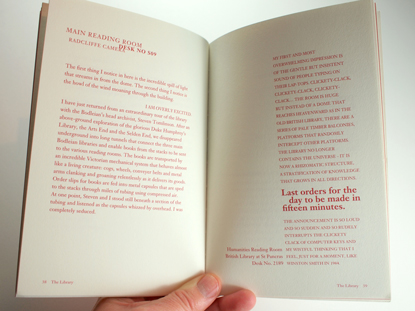 MAIN READING ROOM
DESK NO S09
RADCLIFFE CAMERA
The first thing I notice in here is the incredible spill of light
that streams in from the dome. The second thing I notice is
the howl of the wind moaning through the building.
I AM OVEREXCITED
I have just returned from an extraordinary tour of the library
with the Bodleian's head archivist, Steven Tomlinson. After an
above-ground exploration of the glorious Duke Humphrey's
Library, the Arts End and the Selden End, we disappeared
underground into long tunnels that connect the three main
Bodleian libraries and enable books from the stacks to be sent
to the various reading rooms. The books are transported by
an incredible Victorian mechanical system that behaves almost
like a living creature: cogs, wheels, conveyor belts and metal
arms clanking and groaning relentlessly as it delivers its goods.
Order slips for books are fed into metal capsules that are sped
to the stacks through miles of tubing using compressed air.
At one point, Steven and I stood still beneath a section of the
tubing and listened as the capsules whizzed by overhead. I was
completely seduced.
The Library
MY FIRST AND MOST
OVERWHELMING IMPRESSION IS
OF THE GENTLE BUT INSISTENT
SOUND OF PEOPLE TYPING ON
THEIR LAP-TOPS. CLICKETY-CLACK,
CLICKETY-CLACK, CLICKETY-
CLACK... THE ROOM IS HUGE
BUT INSTEAD OF A DOME THAT
REACHES HEAVENWARDS AS IN THE
OLD BRITISH LIBRARY, THERE ARE A
SERIES OF PALE TIMBER BALCONIES,
PLATFORMS THAT RANDOMLY
INTERCEPT OTHER PLATFORMS.
THE LIBRARY NO LONGER
CONTAINS THE UNIVERSE – IT IS
NOW A MARKMATIC STRUCTURE,
A STRATIFICATION OF KNOWLEDGE
THAT GROWS IN ALL DIRECTIONS.
Last orders for the
day to be made in
fifteen minutes.
THE ANNOUNCEMENT IS SO LOUD
AND SO SUDDEN AND SO RUDELY
INTERRUPTS THE CLICKETY
CLACK OF COMPUTER KEYS AND
MY WISTFUL THINKING THAT I
FEEL, JUST FOR A MOMENT, LIKE
WINSTON SMITH IN 1984.
Humanities Reading Room
British Library at St Pancras
Desk No. 2189
The Library